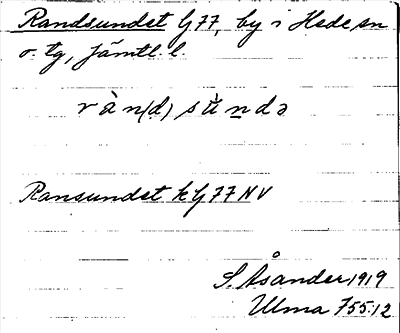 Randsundet G 77, by i Hede sn
o. tg, Jämtl. l.
ràn(d)sùndə
Ransundet k G 77 NV
S. Åsander 1919
Ulma 755:12